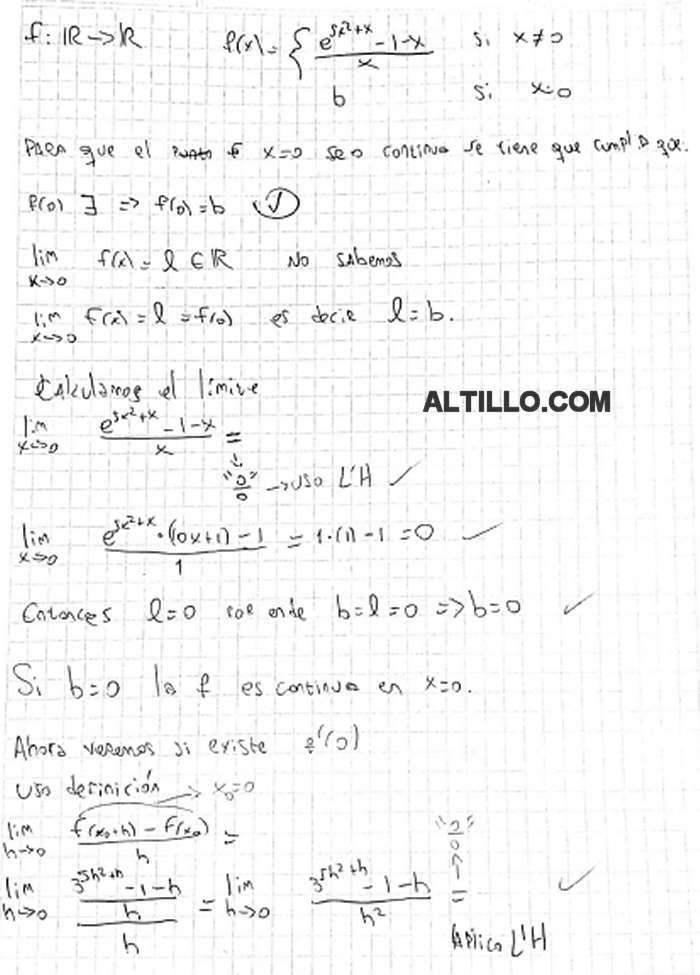 f: ℝ → ℝ f(x) = { (e^(5x²+x) - 1 - x)/x si x ≠ 0
b si x=0
PARA que el punto x=0 sea continua se tiene que cumplir que:
f(0) ∃ => f(0) = b ✓
lim x→0 f(x) = l ∈ ℝ NO SABEMOS
lim x→0 f(x) = l = f(0) es decir l = b.
Calculamos el límite
ALTILLO.COM
lim x→0 (e^(5x²+x) - 1 - x)/x =
"0/0" → uso L'H ✓
lim x→0 (e^(5x²+x) · (10x+1) - 1)/1 = 1·(1) - 1 = 0 ✓
Entonces l=0 por ende b=l=0 => b=0 ✓
Si b=0 la f es continua en x=0.
Ahora veremos si existe f'(0)
Uso definición → x₀=0
lim h→0 (f(x₀+h) - f(x₀))/h =
lim h→0 ((e^(5h²+h) - 1 - h)/h)/h = lim h→0 (e^(5h²+h) - 1 - h)/h² = "0/0" ✓
Aplico L'H